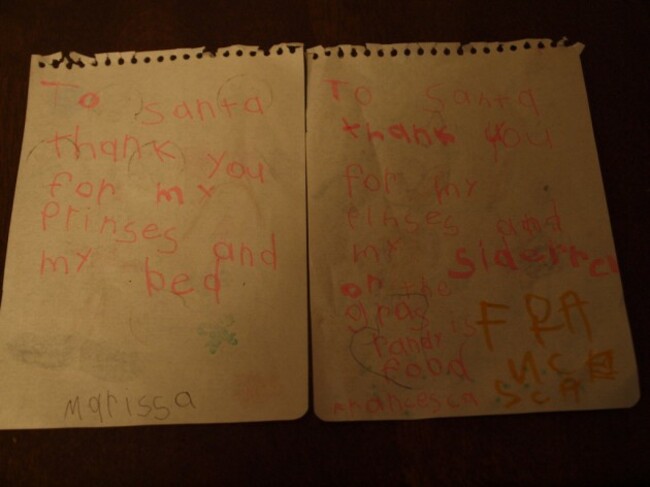 To santa
thank you
for my
prinses and
my bed
Marissa
To Santa
thank you
for my
pinses and
my
on the
gras is
food
francesca
FRA
NCE
SCA